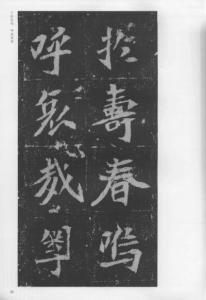 於壽春嗚
呼哀哉